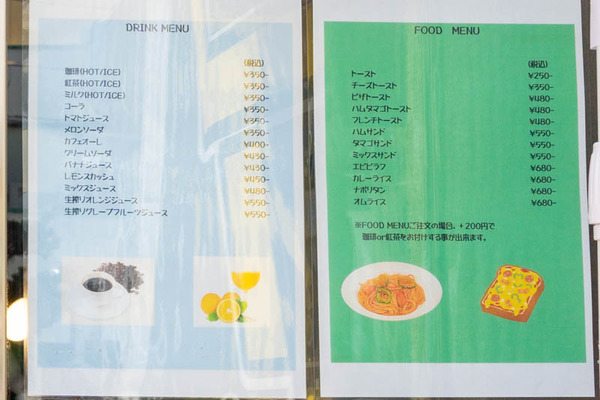 DRINK MENU
(税込)
珈琲(HOT/ICE) ¥350-
紅茶(HOT/ICE) ¥350-
ミルク(HOT/ICE) ¥350-
コーラ ¥350-
トマトジュース ¥350-
メロンソーダ ¥350-
カフェオーレ ¥400-
クリームソーダ ¥430-
バナナジュース ¥430-
レモンスカッシュ ¥450-
ミックスジュース ¥480-
生搾りオレンジジュース ¥550-
生搾りグレープフルーツジュース ¥550-
FOOD MENU
(税込)
トースト ¥250-
チーズトースト ¥350-
ピザトースト ¥480-
ハムタマゴトースト ¥480-
フレンチトースト ¥480-
ハムサンド ¥550-
タマゴサンド ¥550-
ミックスサンド ¥550-
エビピラフ ¥680-
カレーライス ¥680-
ナポリタン ¥680-
オムライス ¥680-
※FOOD MENUご注文の場合、+200円で
珈琲or紅茶をお付けする事が出来ます。